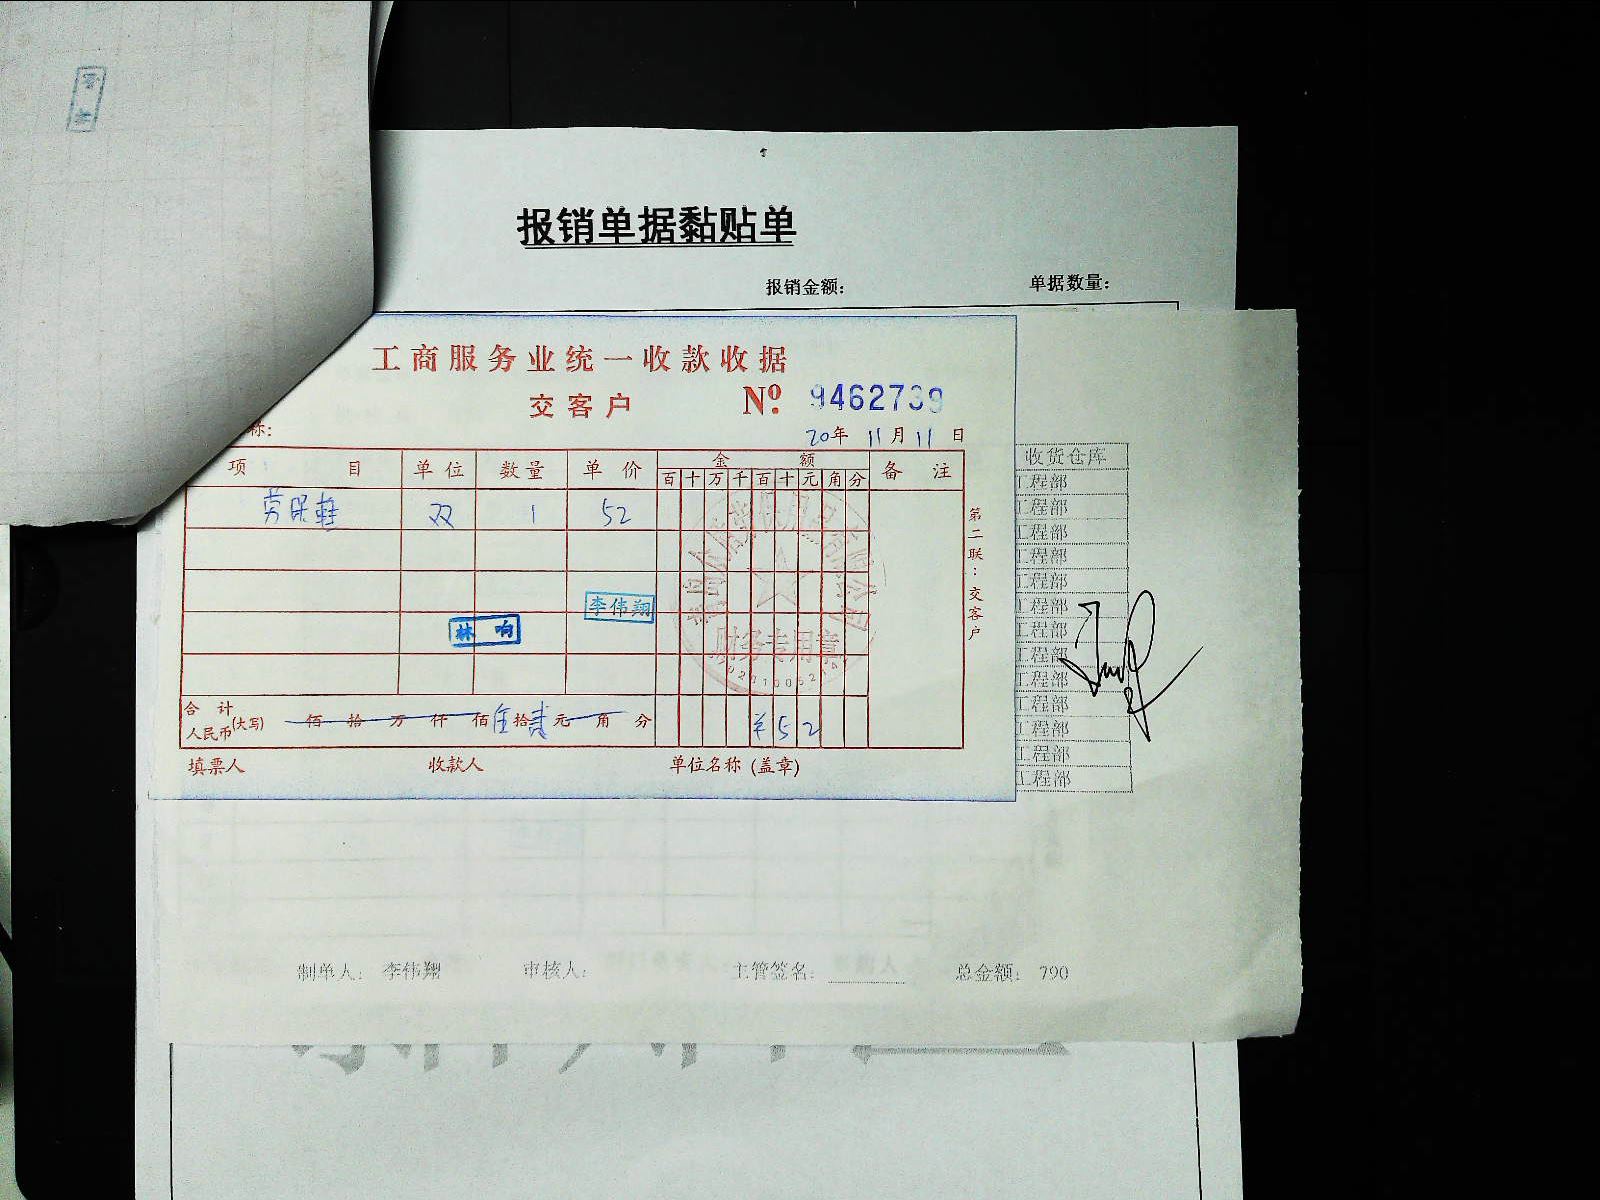 报销单据黏贴单
报销金额: 单据数量:
工商服务业统一收款收据
交客户 Nº. 9462739
称: 20年 11月11日
项目 单位 数量 单价 金额 备注
百十万千百十元角分
劳保鞋 双 1 52
李伟翔
林响
财务专用章
合计
人民币(大写) 佰拾万仟佰伍拾贰元角分 ¥52
填票人 收款人 单位名称(盖章)
第二联:交客户
收货仓库
工程部
工程部
工程部
工程部
工程部
工程部
工程部
工程部
工程部
工程部
工程部
工程部
工程部
制单人: 李伟翔 审核人: 主管签名: 总金额: 790